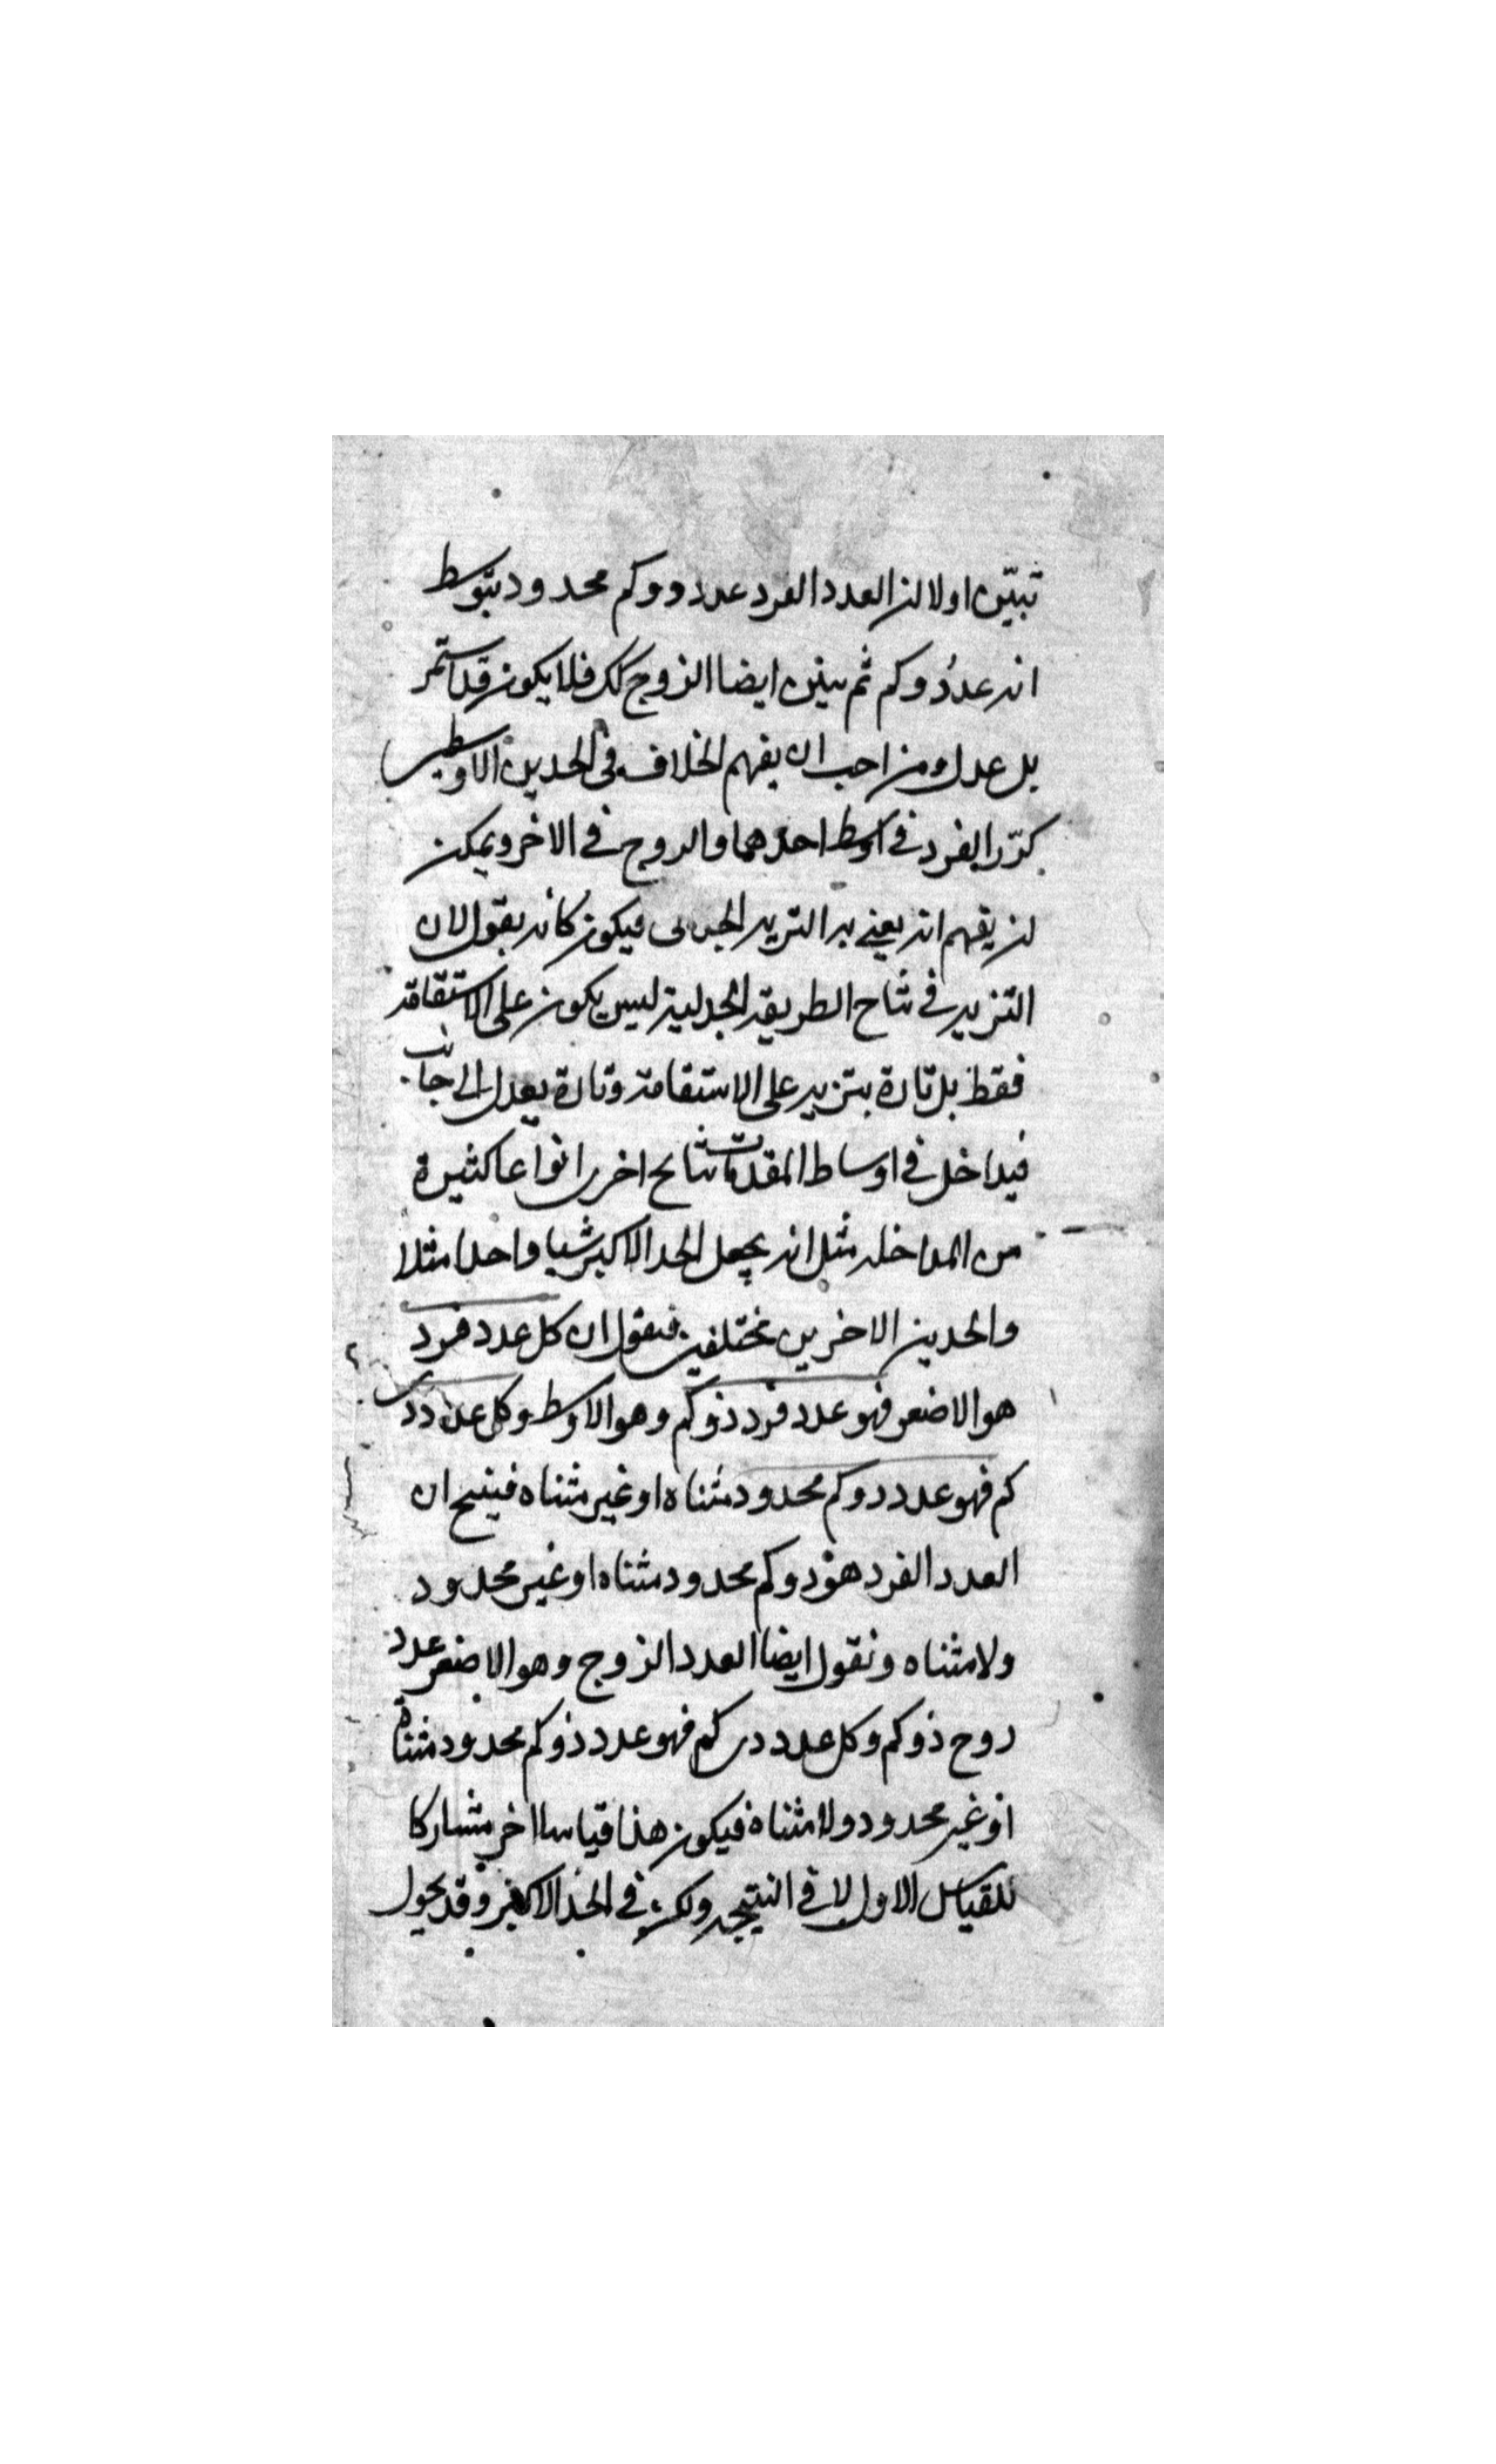 تبيّن اولا ان العدد الفرد عدد ذو كم محدود بتوسط
انه عدد ذو كم ثم يتبين ايضا الزوج كك فلا يكون قد استمر
بل عدل ومن احب ان يفهم الخلاف في الحدين الاوسطين
كرّر الفرد في اوسط احدهما والزوج في الاخر ويمكن
ان يفهم انه يعني به التزيد الجدلى فيكون كانه يقول لان
التزيد في نتاج الطريقة الجدلية ليس يكون على الاستقامة
فقط بل تارة يتزيد على الاستقامة وتارة يعدل الى جانب
فيداخل في اوساط المقدمات نتائج اخرى انواعا كثيرة
من المداخله مثل انه يجعل الحد الاكبر شيا واحدا مثلا
والحدين الاخرين مختلفين فنقول ان كل عدد فرد
هو الاصغر فهو عدد فرد ذو كم وهو الاوسط وكل عدد ذى
كم فهو عدد ذو كم محدود متناه او غير متناه فينتج ان
العدد الفرد هو ذو كم محدود متناه او غير محدود
ولا متناه ونقول ايضا العدد الزوج وهو الاصغر عدد
زوج ذو كم وكل عدد ذى كم فهو عدد ذو كم محدود متناه
او غير محدود ولا متناه فيكون هذا قياسا اخر مشاركا
للقياس الاول لا في النتيجه ولكن في الحد الاكبر وقد يحول